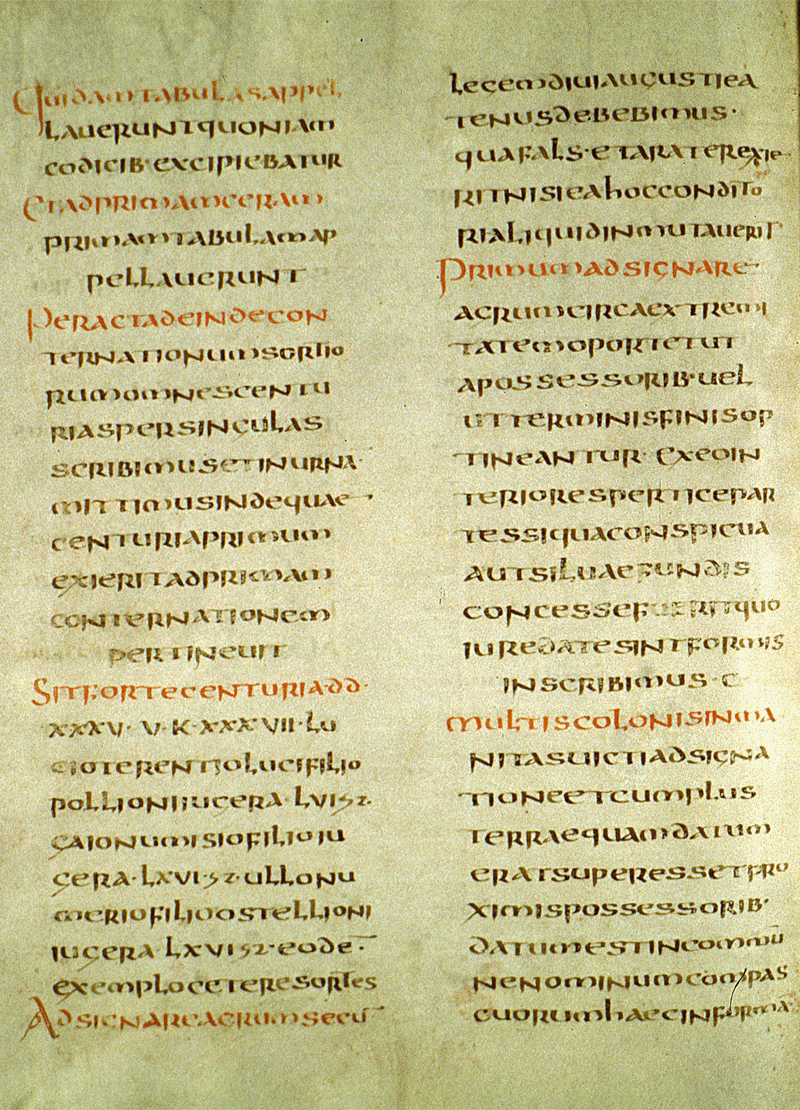 QUIDAMTABULASAPPEL
LAUERUNTQUONIAM
CODICIB·EXCIPIEBATUR
ETADPRIMAMCERAM
PRIMAMTABULAMAP
PELLAUERUNT
PERACTADEINDECON
TERNATIONUMSORTIO
RUMOMNESCENTU
RIASPERSINGULAS
SCRIBIMUSETINURNA·
MITTIMUSINDEQUAE·
CENTURIAPRIMUM
EXIERITADPRIMAM
CONTERNATIONEM
PERTINEUIT
SITFORTECENTURIADD·
XXXV·V·K·XXXVII·LU
CIOTERENTIOLUCIFILIO
POLLIONIIUGERA·LVI
GAIONUMISIOFILIOIU
GERA·LXVI ULLONU
MERIOFILIOOSTELLIONI
IUGERA·LXVI EODE·
EXEMPLOCETERESORTES
ADSIGNAREAGRUMSECU
LEGEMDIUIAUGUSTIEA
TENUSDEBEBIMUS·
QUAFALS·ETARATEREXIE
RITNISIEAHOCCONDITO
RIALIQUIDINMUTAUERIT
PRIMUMADSIGNARE
AGRUMCIRCAEXTREMI
TATEMOPORTETUT
APOSSESSORIB·UEL
UTTERMINISFINISOP
TINEANTUR·EXEOIN
TERIORESPERTICEPAR
TESSIQUACONSPICUA
AUTSILUAEFUNDIS
CONCESSEFUERINTQUO
IUREDATESINTFORMIS
INSCRIBIMUS·C
MULTISCOLONISINMA
NITASUICTIADSIGNA
TIONEETCUMPLUS
TERRAEQUAMDATUM
ERATSUPERESSETPRO
XIMISPOSSESSORIB·
DATUMESTINCOMMU
NENOMINUMCOMPAS
CUORUMHAECINFORMA